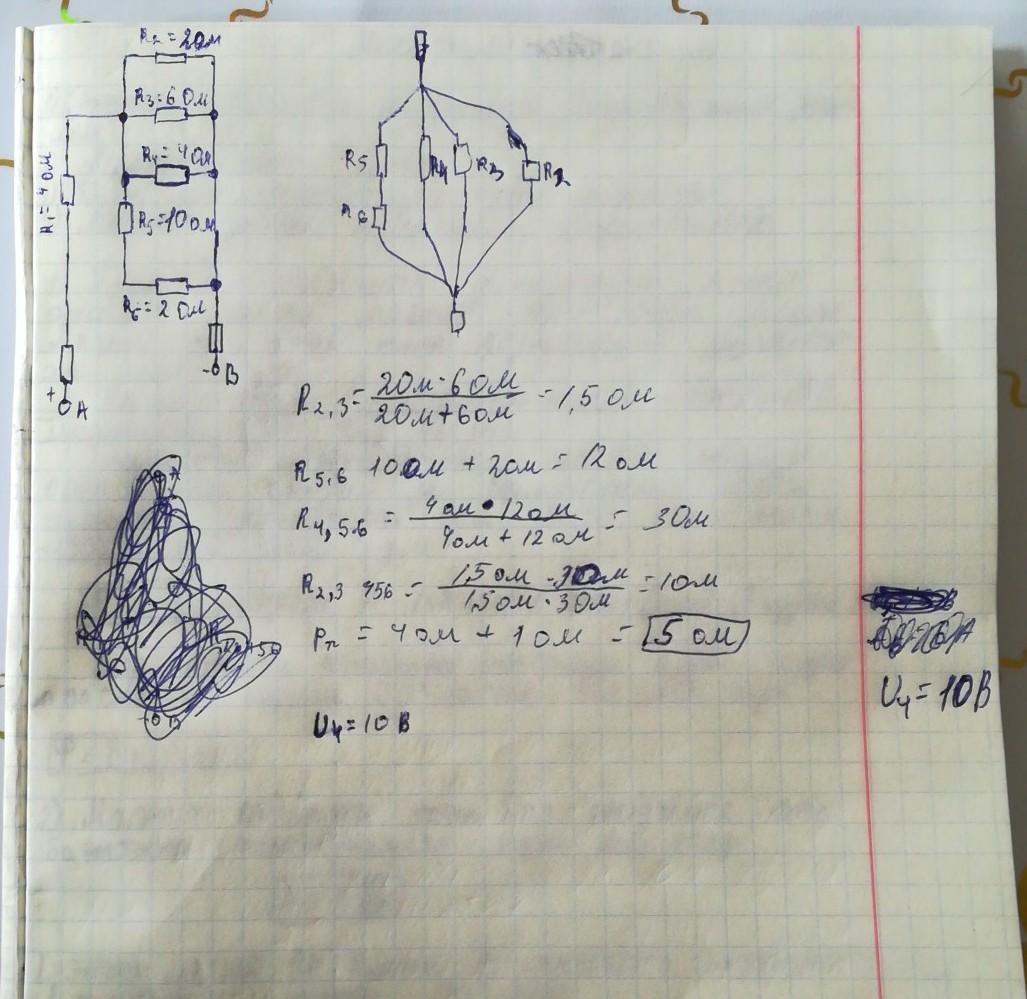 R₂=2ом
R₃=6 ом
R₄=4ом
R₁=4 ом
R₅=10ом
R₆=2 ОМ
+ A
- B
R5
R4
R3
R2
R6
R₂,₃= 2ом·6ом / 2ом+6ом = 1,5 ом
R₅,₆ 10ом + 2ом = 12 ом
R₄,₅.₆ = 4ом·12ом / 4ом + 12ом = 3ом
R₂,₃ 456 = 1,5 ом · 3ом / 1,5ом · 3ом = 1ом
Pп = 4ом + 1 ом = 5 ом
U₄=10В
U₄=10В